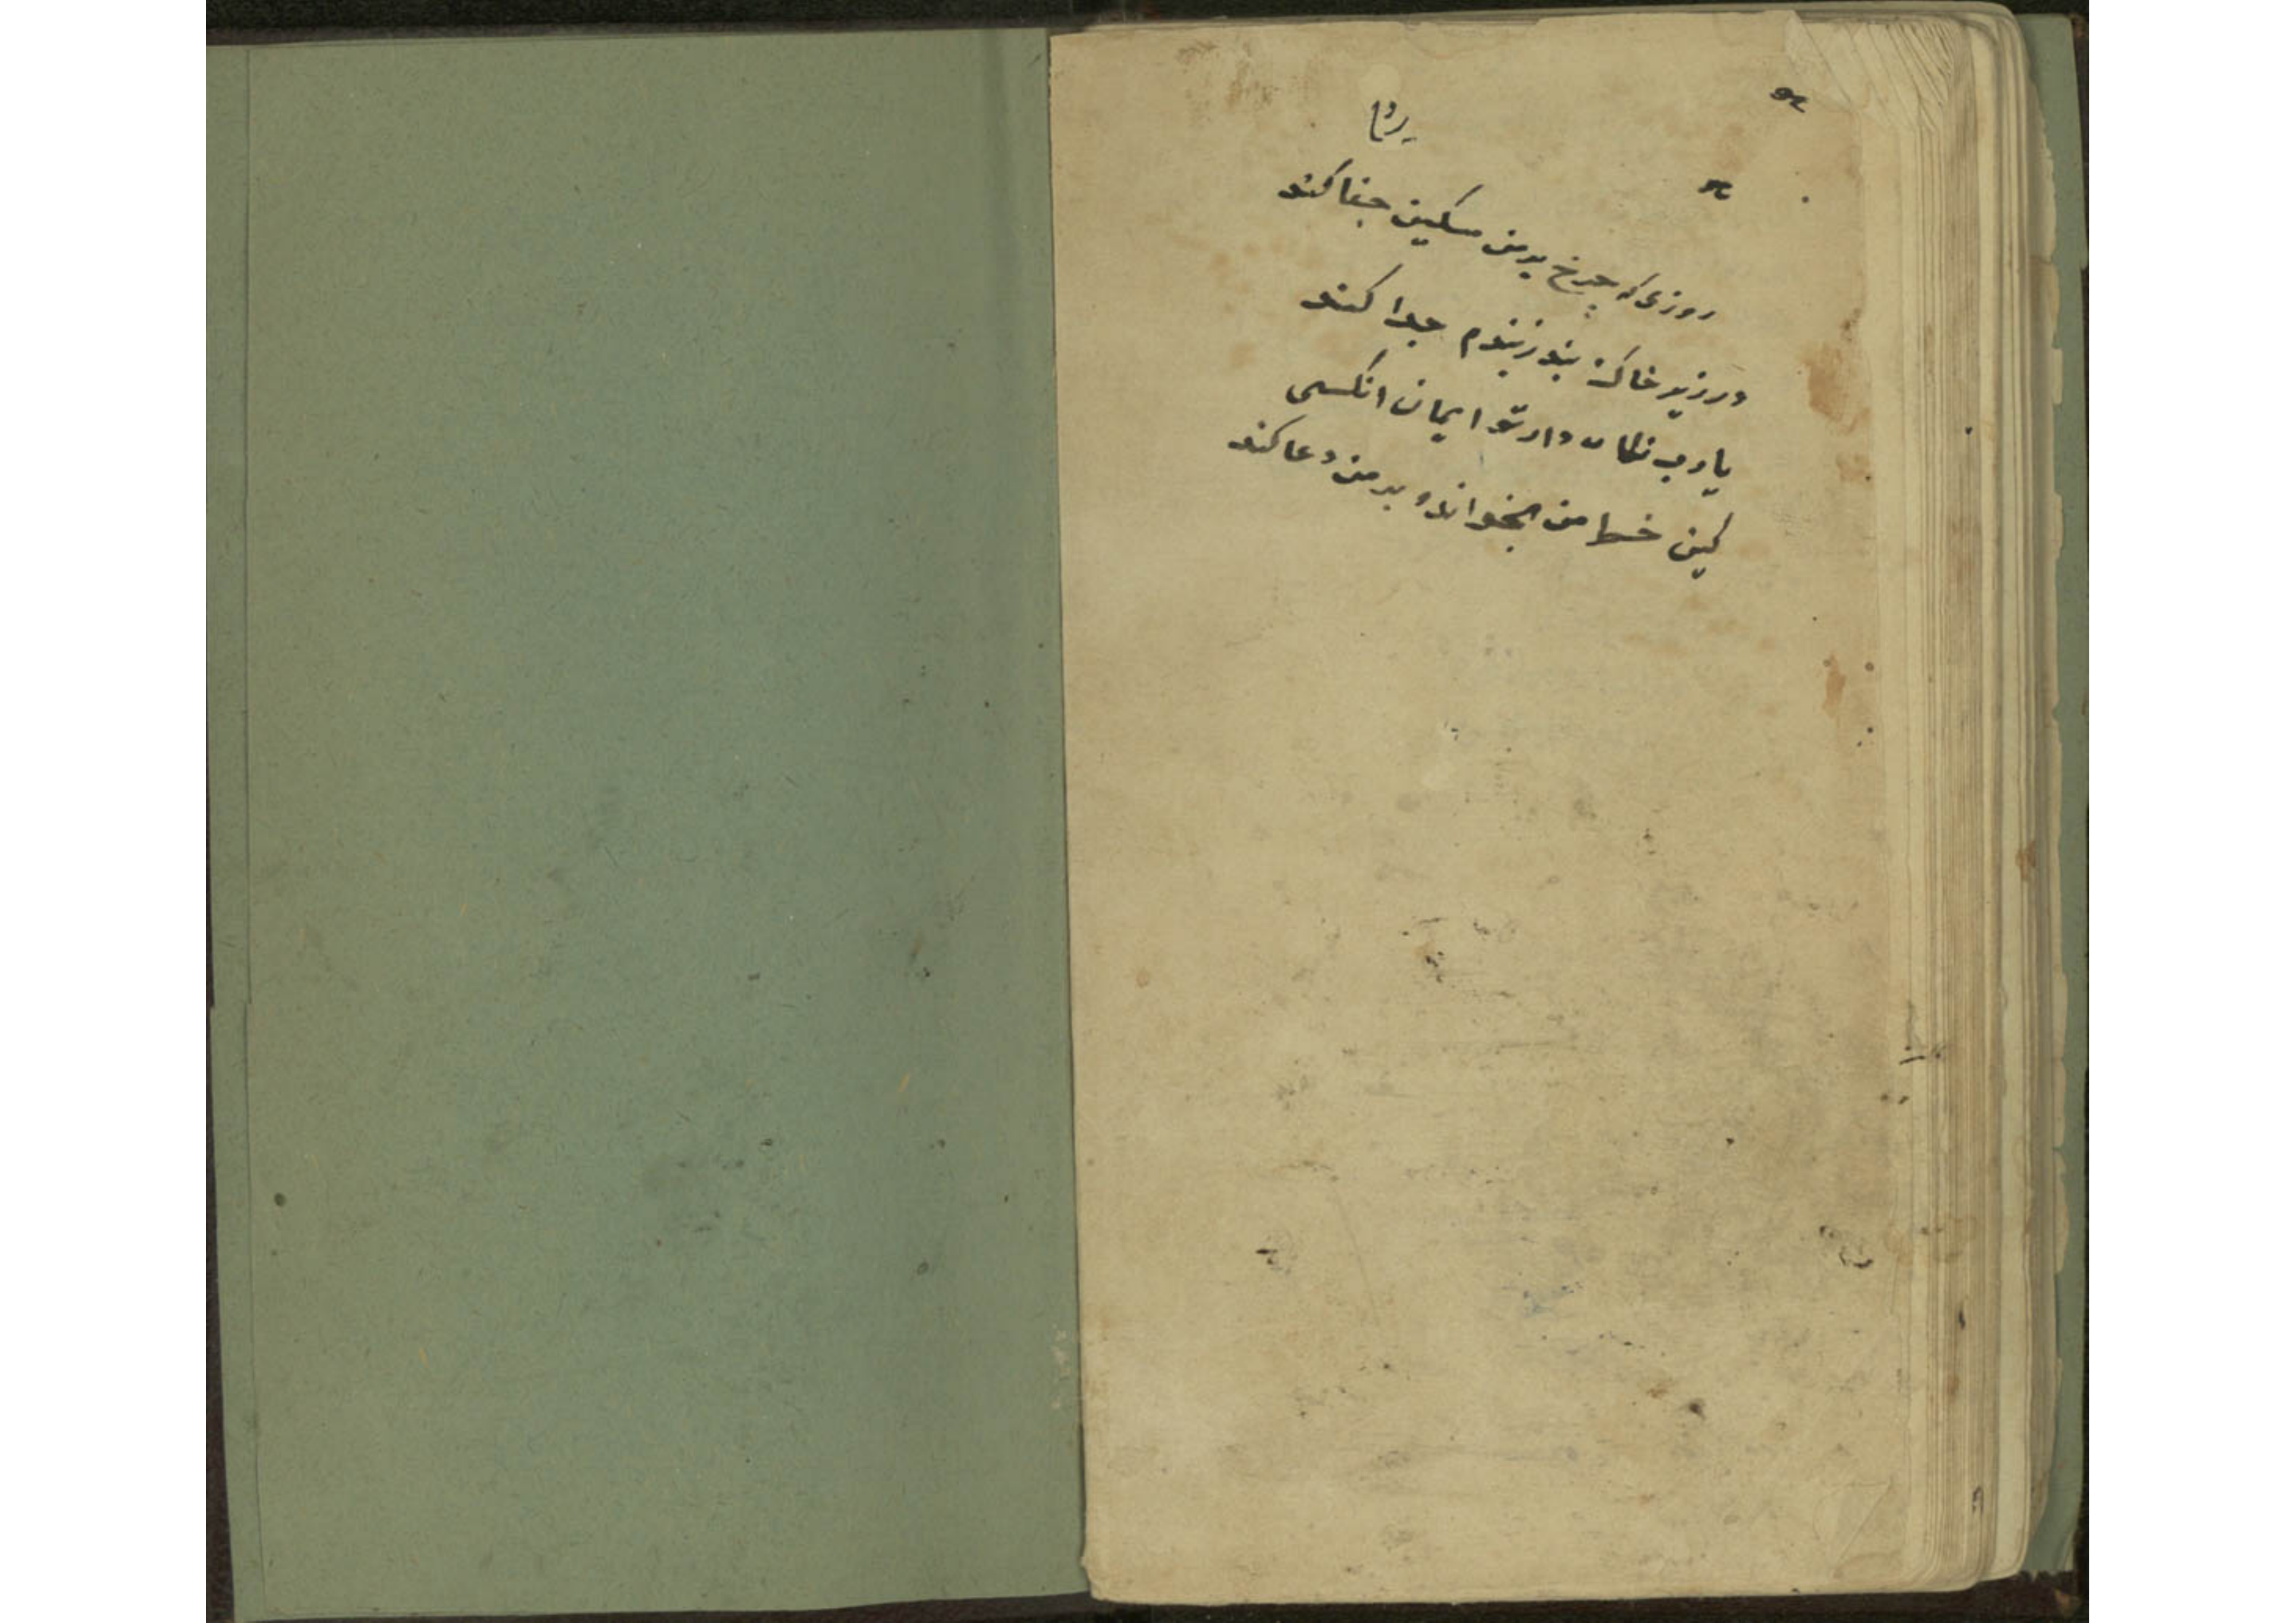 روزی که چرخ بر من مسکین جفا کند
در زیر خاک بند ز بندم جدا کند
یا رب نکاه دار تو ایمان انکسی
کین خط من بخواند و بر من دعا کند